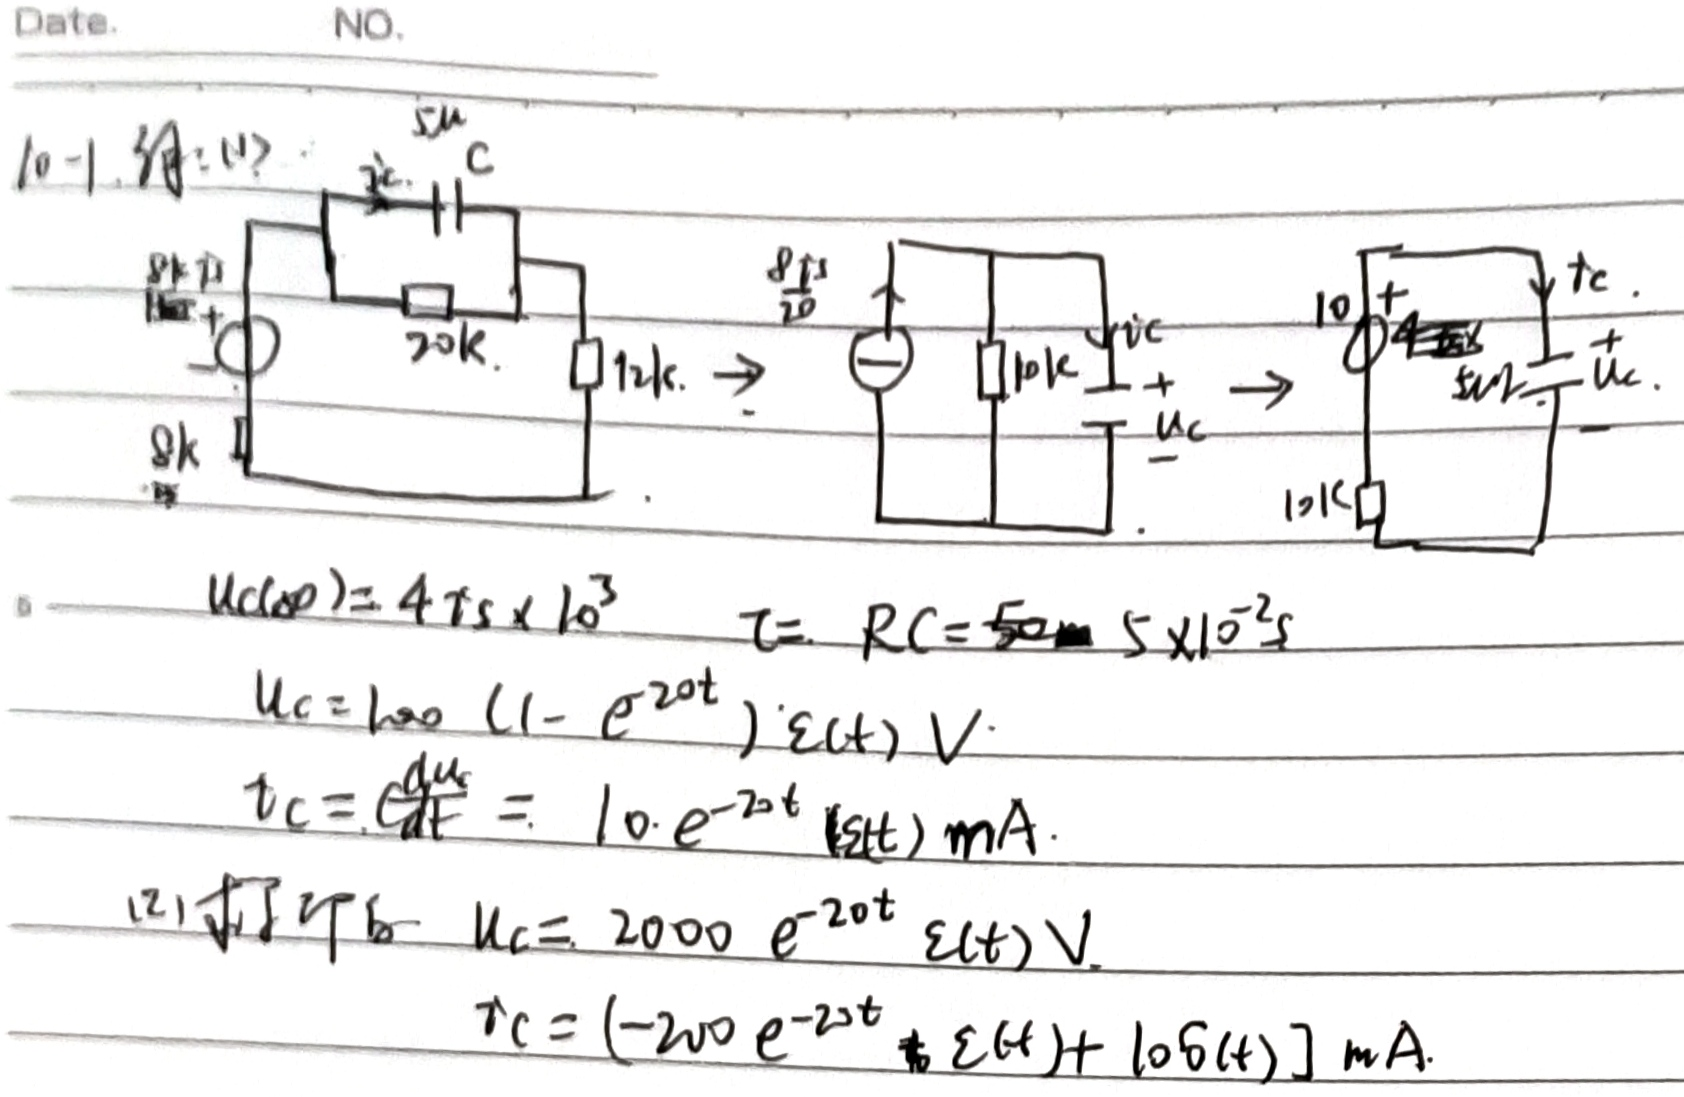 Date. NO.
10-1. 解:(1)
5μ
C
ic.
8k is
+
-
20k.
12k.
8k
8is
20
10k
ic
+
uc
-
10
+
ic.
+
uc.
-
10k
uc(∞)= 4is×10³ τ= RC= 5×10⁻²s
uc=100 (1- e⁻²⁰ᵗ) ε(t) V.
ic = C duc/dt = 10.e⁻²⁰ᵗ ε(t) mA.
(2) uc= 2000 e⁻²⁰ᵗ ε(t) V.
ic = [-200 e⁻²⁰ᵗ ε(t)+ 10δ(t)] mA.